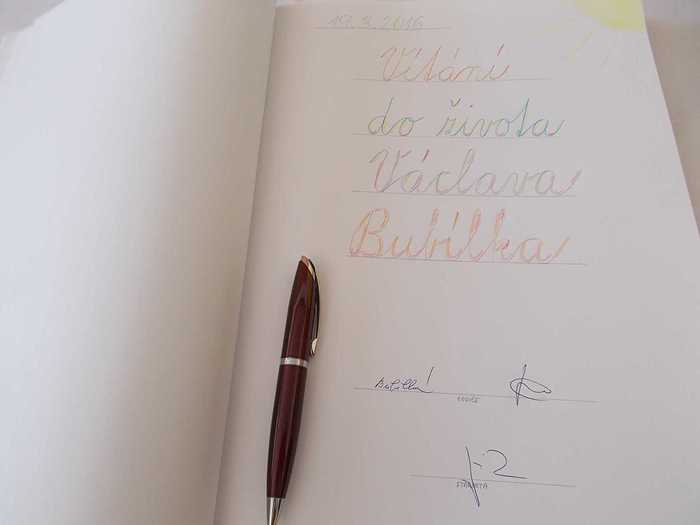 19. 3. 2016
Vítání
do života
Václava
Bubílka
RODIČE
STAROSTA